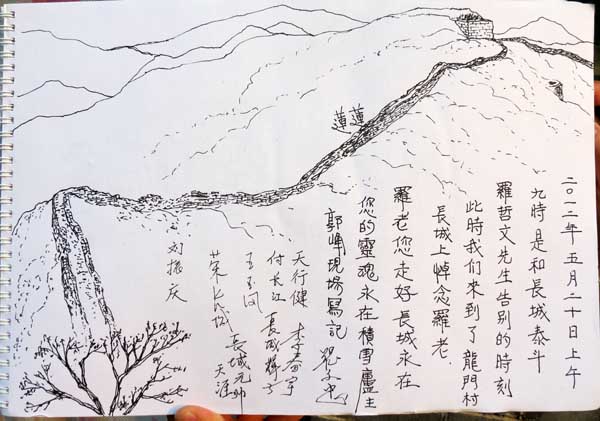 二〇一二年五月二十日上午
九時是和長城泰斗
羅哲文先生告别的時刻
此時我们來到了龍門村
長城上悼念羅老
羅老您走好長城永在
您的靈魂永在積雪廬主
郭峰現場寫記
蓮蓮
天行健 李春宇
付长江 長城
長城元帅
天涯
刘振庆